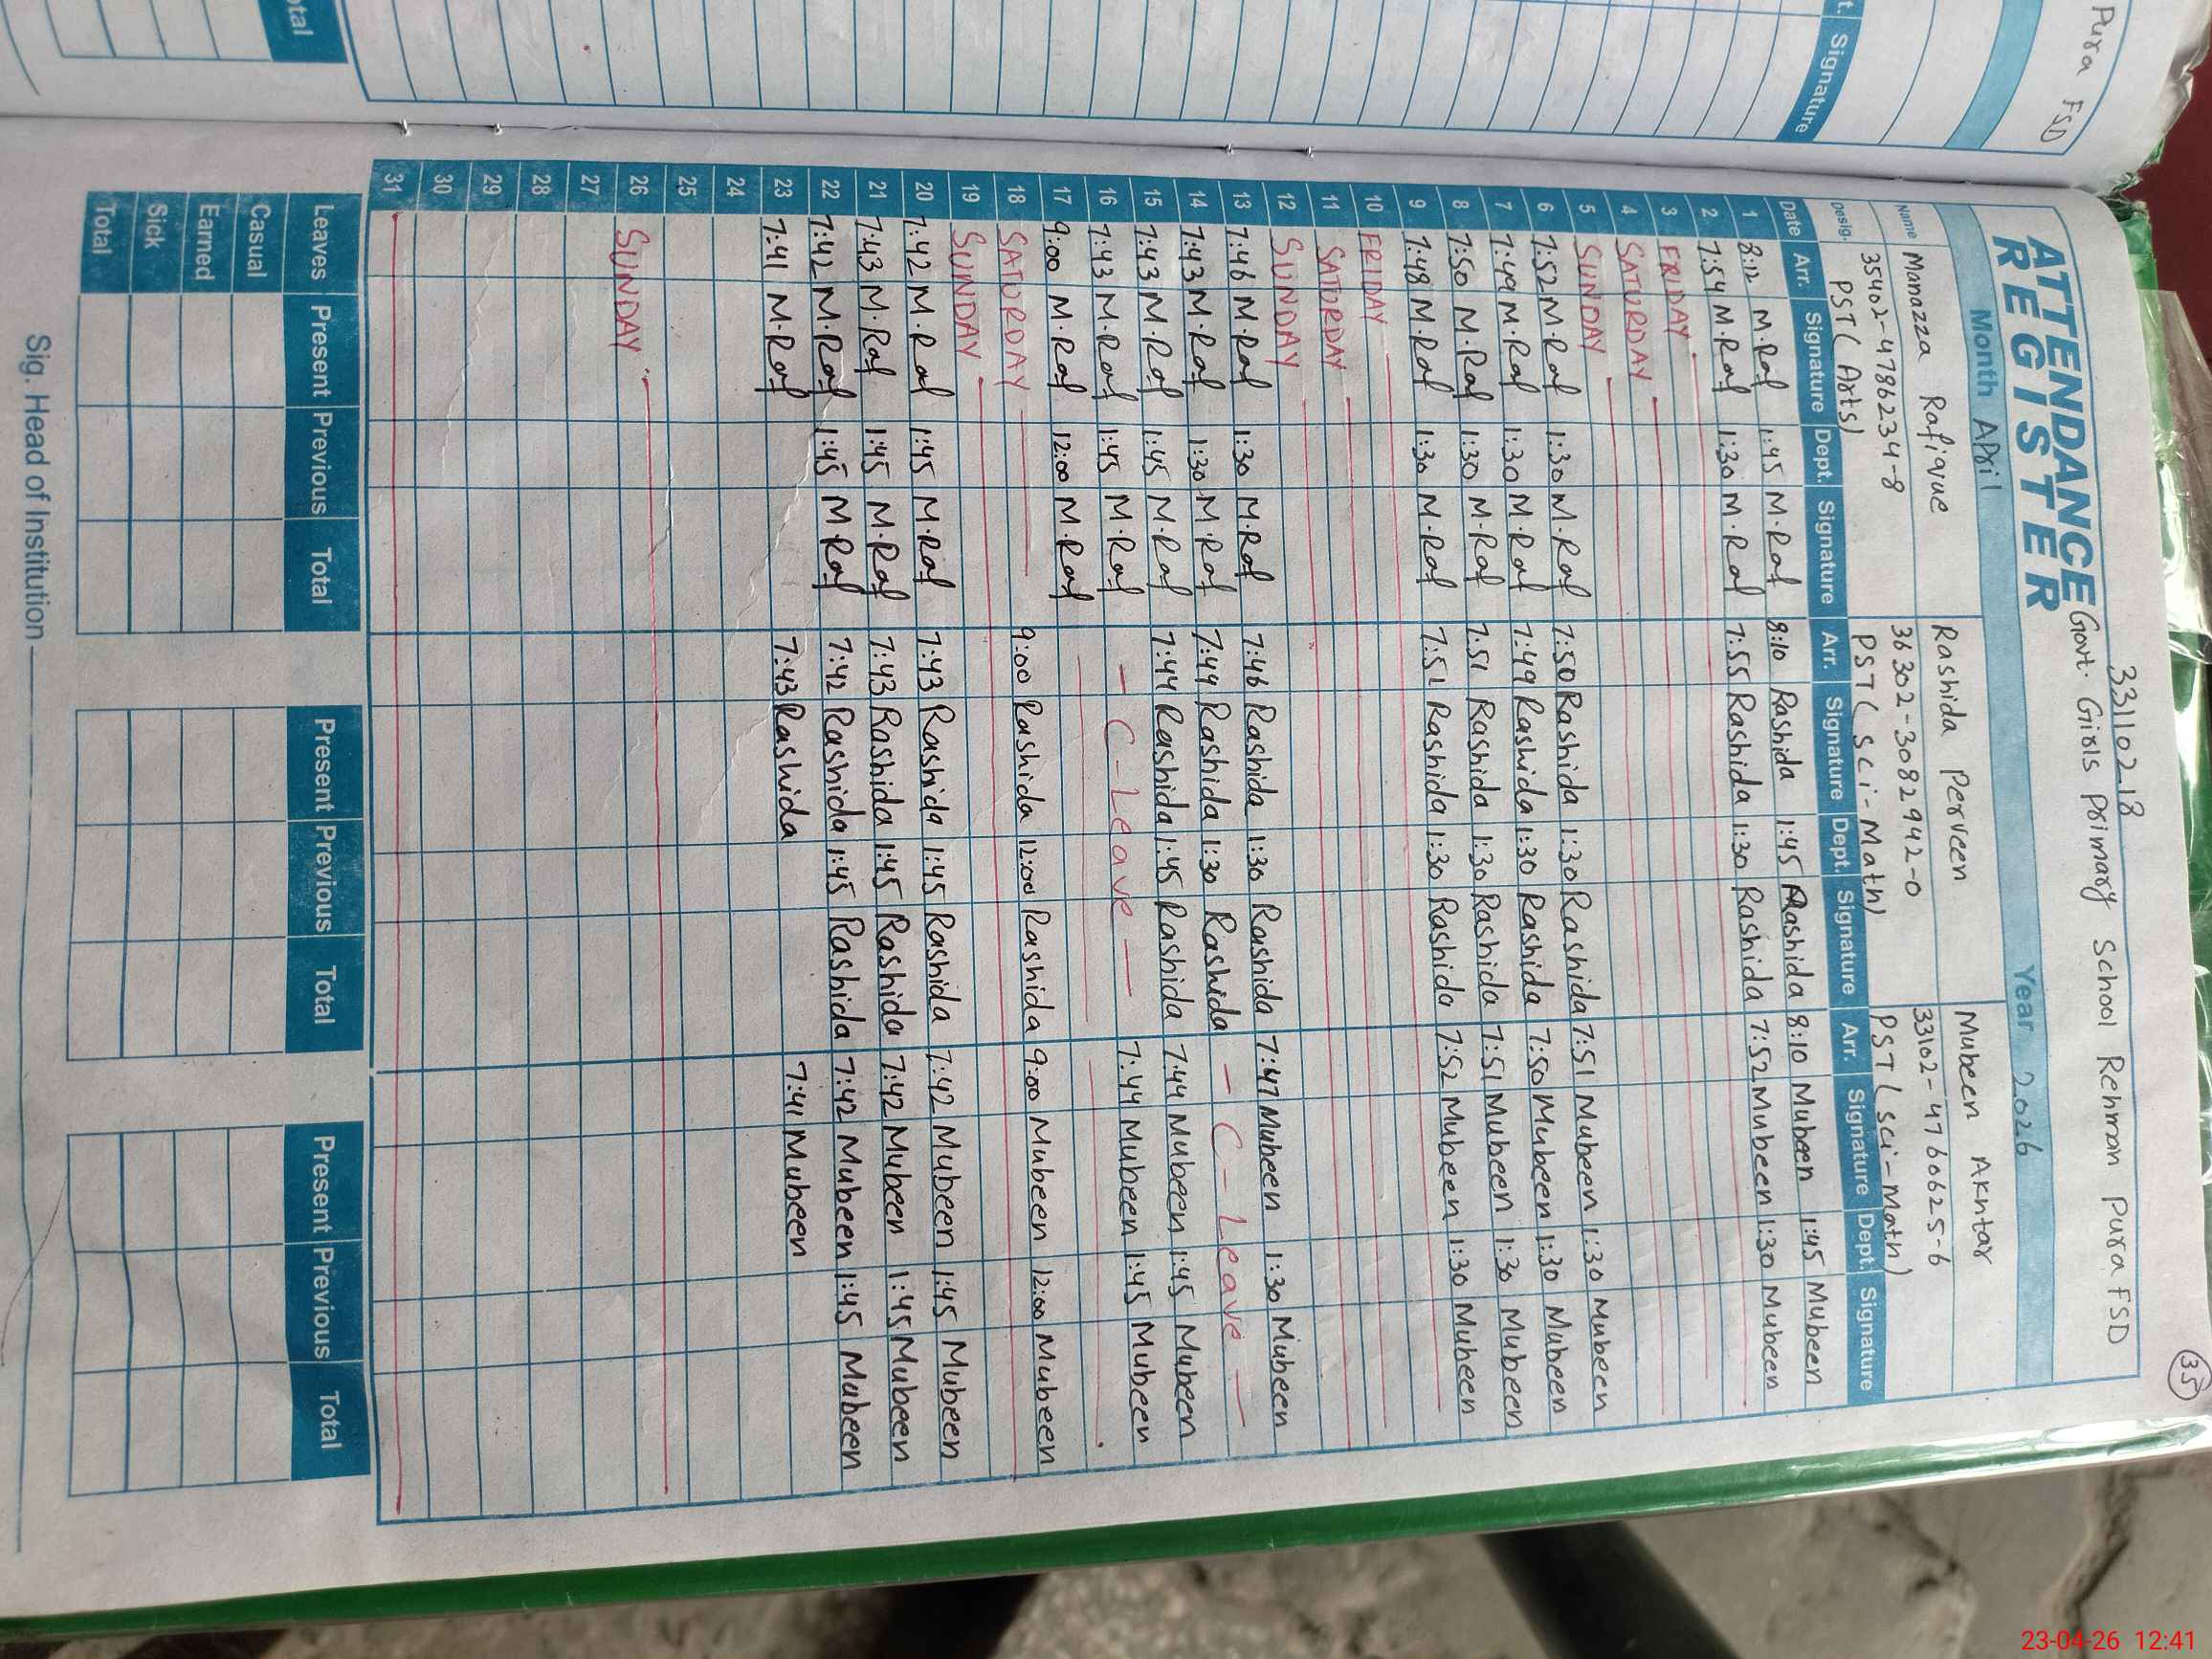 Pura FSD
t. Signature
Signature
otal
35
33110218
Govt. Girls Primary School Rehman Pura FSD
ATTENDANCE
REGISTER
Month April Year 2026
Name Manazza Rafique Rashida Perveen Mubeen Akhtar
35402-4786234-8 36302-3082942-0 33102-4760625-6
Desig. PST (Arts) PST (Sci-Math) PST (Sci-Math)
Date Arr. Signature Dept. Signature Arr. Signature Dept. Signature Arr. Signature Dept. Signature
1 8:12 M.Raf 1:45 M.Raf 8:10 Rashida 1:45 Rashida 8:10 Mubeen 1:45 Mubeen
2 7:54 M.Raf 1:30 M.Raf 7:55 Rashida 1:30 Rashida 7:52 Mubeen 1:30 Mubeen
3 FRIDAY
4 SATURDAY
5 SUNDAY
6 7:52 M.Raf 1:30 M.Raf 7:50 Rashida 1:30 Rashida 7:51 Mubeen 1:30 Mubeen
7 7:49 M.Raf 1:30 M.Raf 7:49 Rashida 1:30 Rashida 7:50 Mubeen 1:30 Mubeen
8 7:50 M.Raf 1:30 M.Raf 7:51 Rashida 1:30 Rashida 7:51 Mubeen 1:30 Mubeen
9 7:48 M.Raf 1:30 M.Raf 7:51 Rashida 1:30 Rashida 7:52 Mubeen 1:30 Mubeen
10 FRIDAY
11 SATURDAY
12 SUNDAY
13 7:46 M.Raf 1:30 M.Raf 7:46 Rashida 1:30 Rashida 7:47 Mubeen 1:30 Mubeen
14 7:43 M.Raf 1:30 M.Raf 7:49 Rashida 1:30 Rashida - C-Leave -
15 7:43 M.Raf 1:45 M.Raf 7:44 Rashida 1:45 Rashida 7:44 Mubeen 1:45 Mubeen
16 7:43 M.Raf 1:45 M.Raf - C-Leave - 7:44 Mubeen 1:45 Mubeen
17 9:00 M.Raf 12:00 M.Raf
18 SATURDAY 9:00 Rashida 12:00 Rashida 9:00 Mubeen 12:00 Mubeen
19 SUNDAY
20 7:42 M.Raf 1:45 M.Raf 7:43 Rashida 1:45 Rashida 7:42 Mubeen 1:45 Mubeen
21 7:43 M.Raf 1:45 M.Raf 7:43 Rashida 1:45 Rashida 7:42 Mubeen 1:45 Mubeen
22 7:42 M.Raf 1:45 M.Raf 7:42 Rashida 1:45 Rashida 7:42 Mubeen 1:45 Mubeen
23 7:41 M.Raf 7:43 Rashida 7:41 Mubeen
24
25
26 SUNDAY
27
28
29
30
31
Leaves Present Previous Total Present Previous Total Present Previous Total
Casual
Earned
Sick
Total
Sig. Head of Institution
23-04-26 12:41